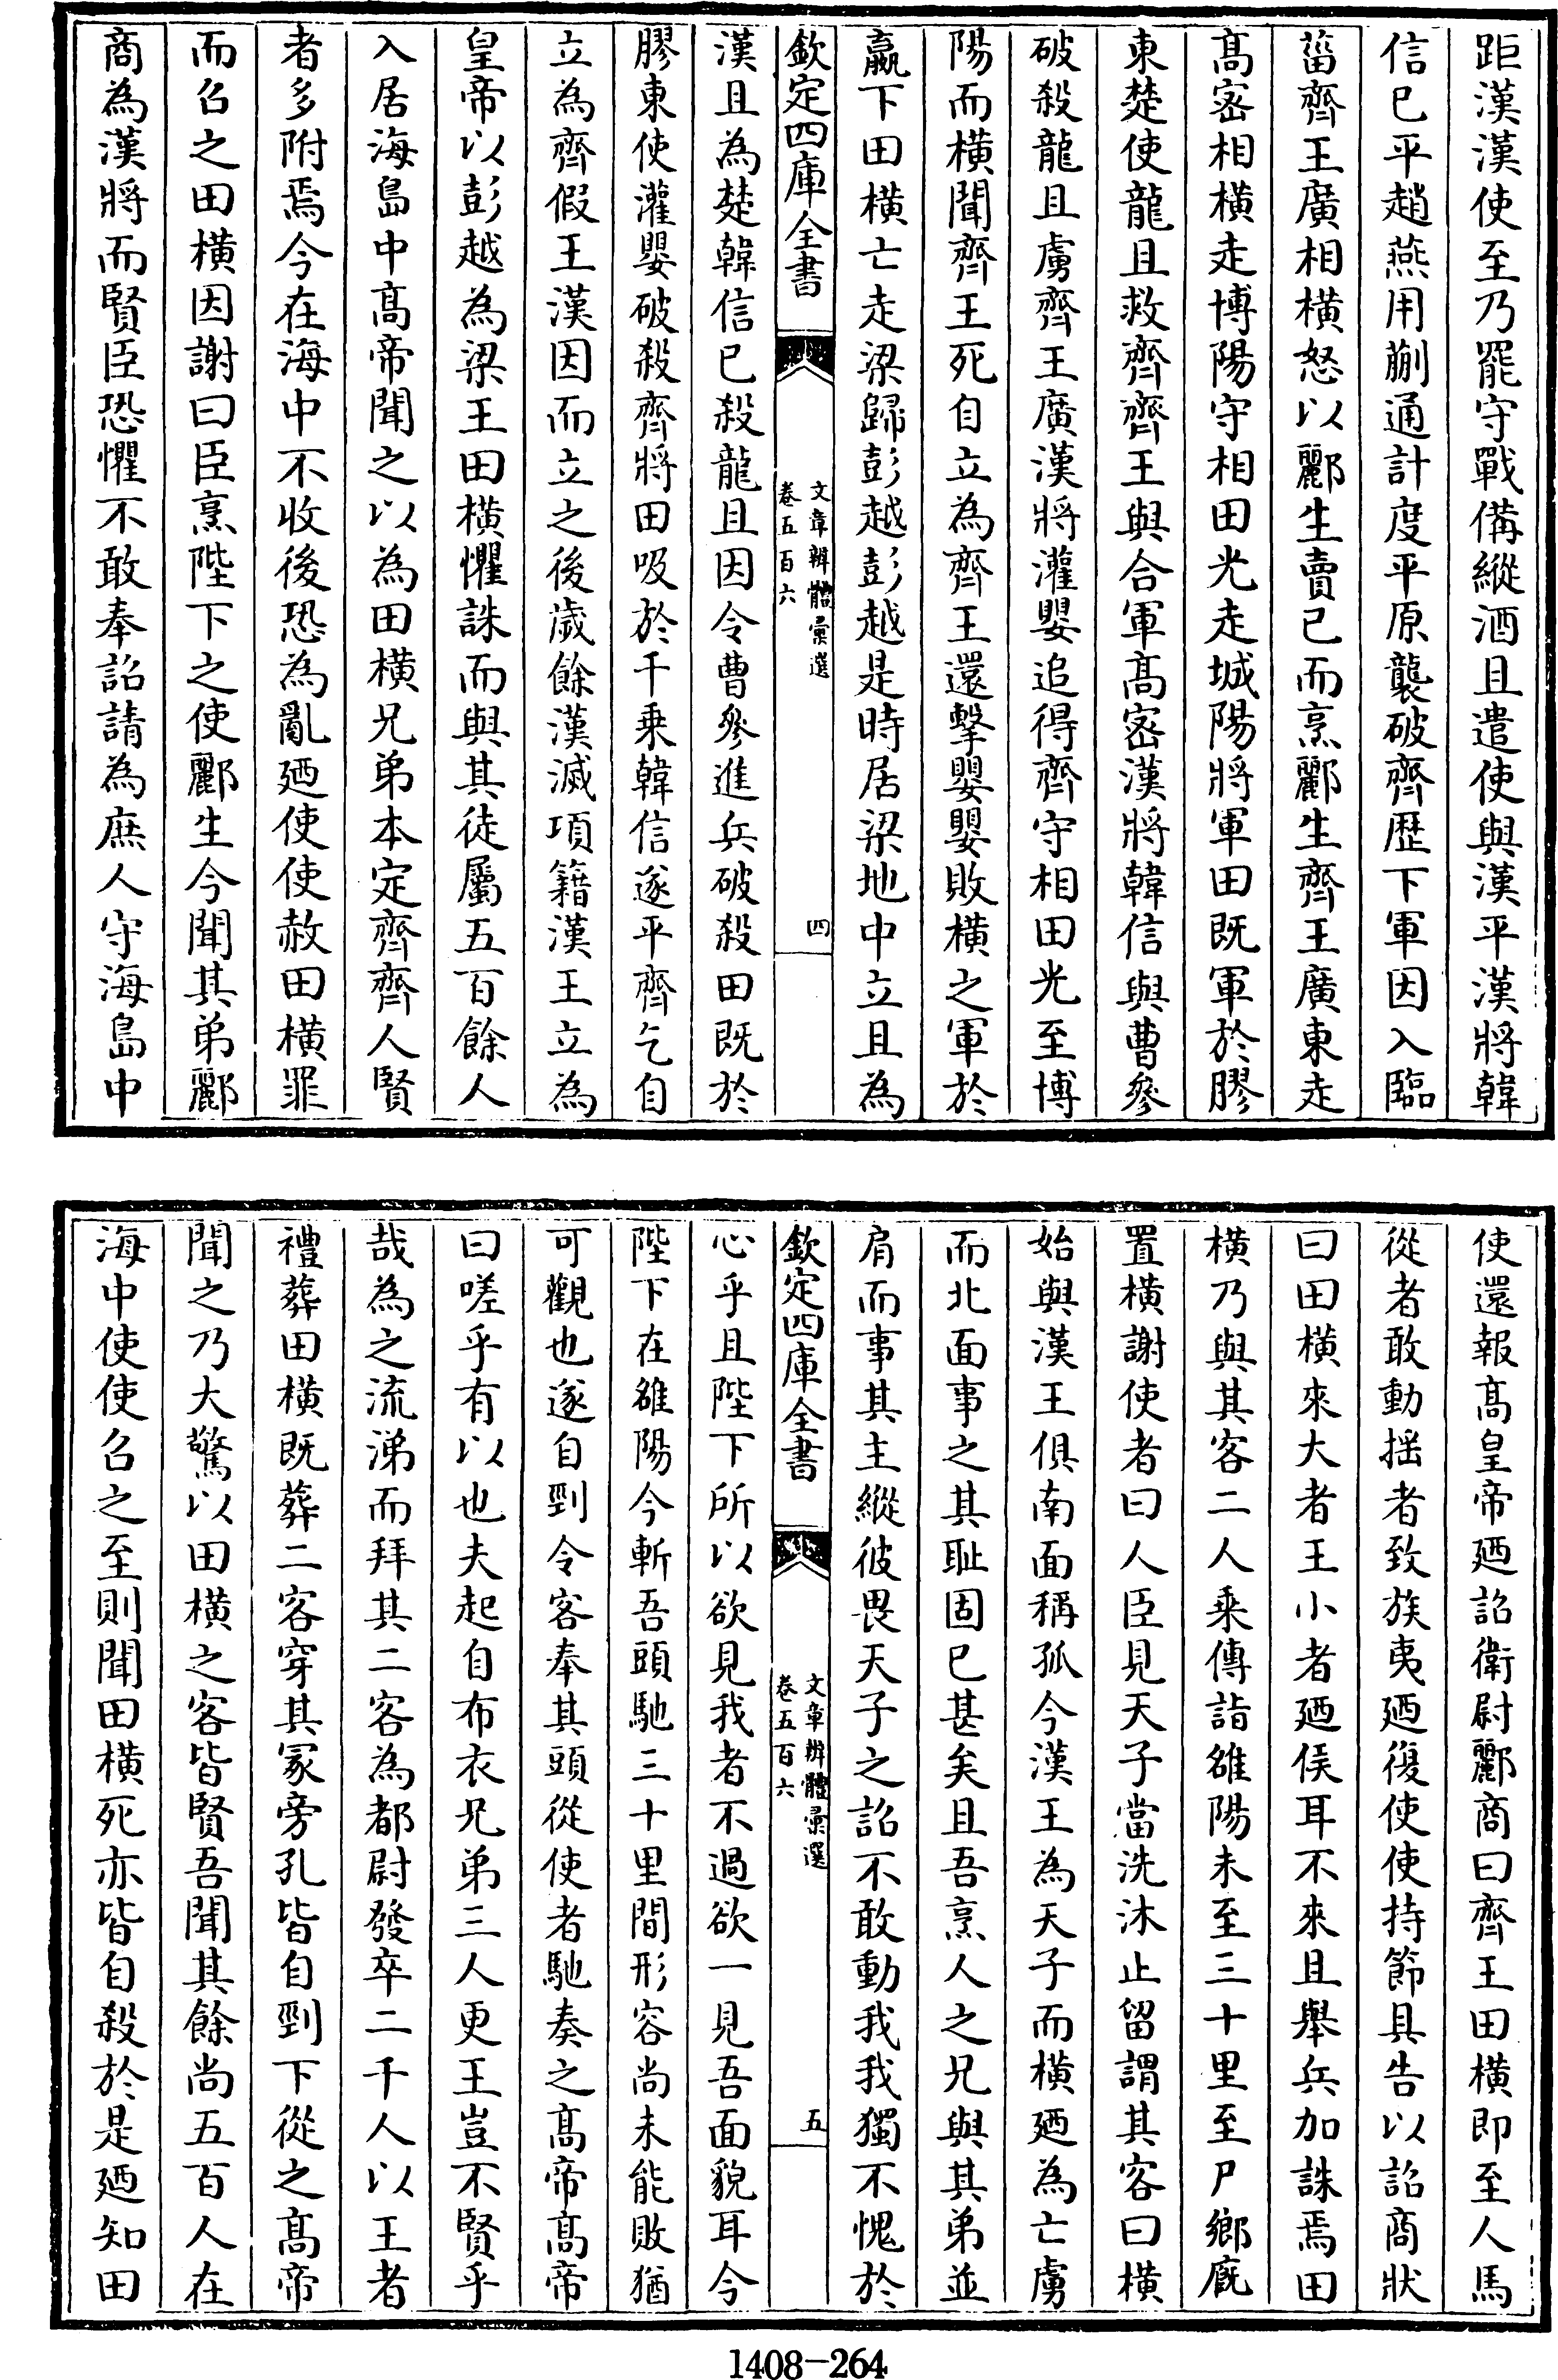 距漢漢使至乃罷守戰備縱酒且遣使與漢平漢將韓
信已平趙燕用蒯通計度平原襲破齊歴下軍因入臨
菑齊王廣相橫怒以酈生賣已而烹酈生齊王廣東走
髙宻相橫走博陽守相田光走城陽將軍田既軍於膠
東楚使龍且救齊齊王與合軍髙宻漢將韓信與曹參
破殺龍且虜齊王廣漢將灌嬰追得齊守相田光至博
陽而橫聞齊王死自立為齊王還擊嬰嬰敗橫之軍於
嬴下田橫亡走梁歸彭越彭越是時居梁地中立且為
欽定四庫全書
文章辨體彚選
卷五百六
四
漢且為楚韓信已殺龍且因令曹參進兵破殺田既於
膠東使灌嬰破殺齊將田吸於千乗韓信遂平齊乞自
立為齊假王漢因而立之後歲餘漢滅項籍漢王立為
皇帝以彭越為梁王田橫懼誅而與其徒屬五百餘人
入居海島中髙帝聞之以為田橫兄弟本定齊齊人賢
者多附焉今在海中不收後恐為亂廼使使赦田橫罪
而召之田橫因謝曰臣烹陛下之使酈生今聞其弟酈
商為漢將而賢臣恐懼不敢奉詔請為庶人守海島中
使還報髙皇帝廼詔衛尉酈商曰齊王田橫即至人馬
從者敢動揺者致族夷廼復使使持節具告以詔商狀
曰田橫來大者王小者廼侯耳不來且舉兵加誅焉田
橫乃與其客二人乗傳詣雒陽未至三十里至尸鄉廐
置橫謝使者曰人臣見天子當洗沐止留謂其客曰橫
始與漢王俱南面稱孤今漢王為天子而橫廼為亡虜
而北面事之其耻固已甚矣且吾烹人之兄與其弟並
肩而事其主縱彼畏天子之詔不敢動我我獨不愧於
欽定四庫全書
文章辨體彚選
卷五百六
五
心乎且陛下所以欲見我者不過欲一見吾面貌耳今
陛下在雒陽今斬吾頭馳三十里間形容尚未能敗猶
可觀也遂自剄令客奉其頭從使者馳奏之髙帝髙帝
曰嗟乎有以也夫起自布衣兄弟三人更王豈不賢乎
哉為之流涕而拜其二客為都尉發卒二千人以王者
禮葬田橫既葬二客穿其冡旁孔皆自剄下從之髙帝
聞之乃大驚以田橫之客皆賢吾聞其餘尚五百人在
海中使使召之至則聞田橫死亦皆自殺於是廼知田
1408-264